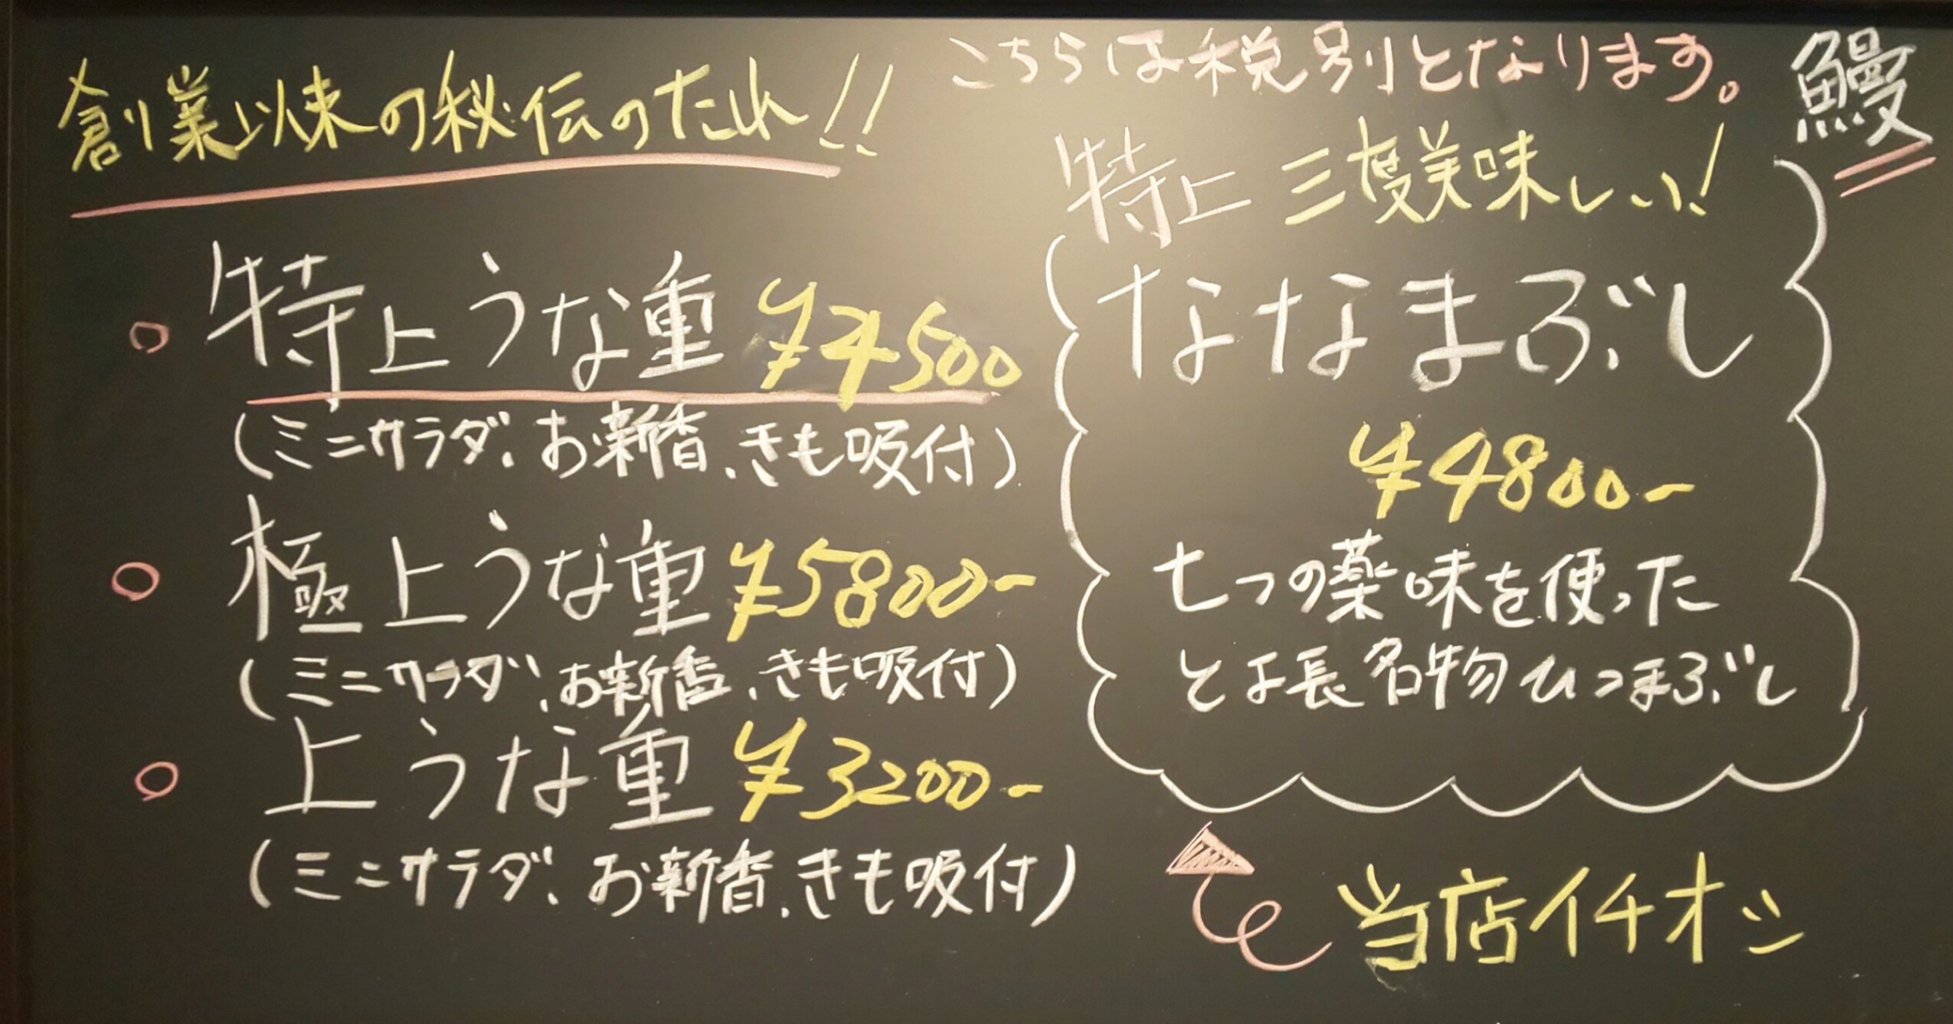 創業以来の秘伝のたれ!!
○特上うな重 ¥4500
(ミニサラダ、お新香、きも吸付)
○極上うな重 ¥5800-
(ミニサラダ、お新香、きも吸付)
○上うな重 ¥3200-
(ミニサラダ、お新香、きも吸付)
こちらは税別となります。
鰻
特上 三度美味しい!
ななまぶし
¥4800-
七つの薬味を使った
とよ長名物ひつまぶし
当店イチオシ